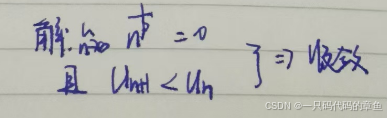 解: lim n→∞ 1/n^p = 0
且 Un+1 < Un } ⇒ 收敛
CSDN @一只码代码的章鱼